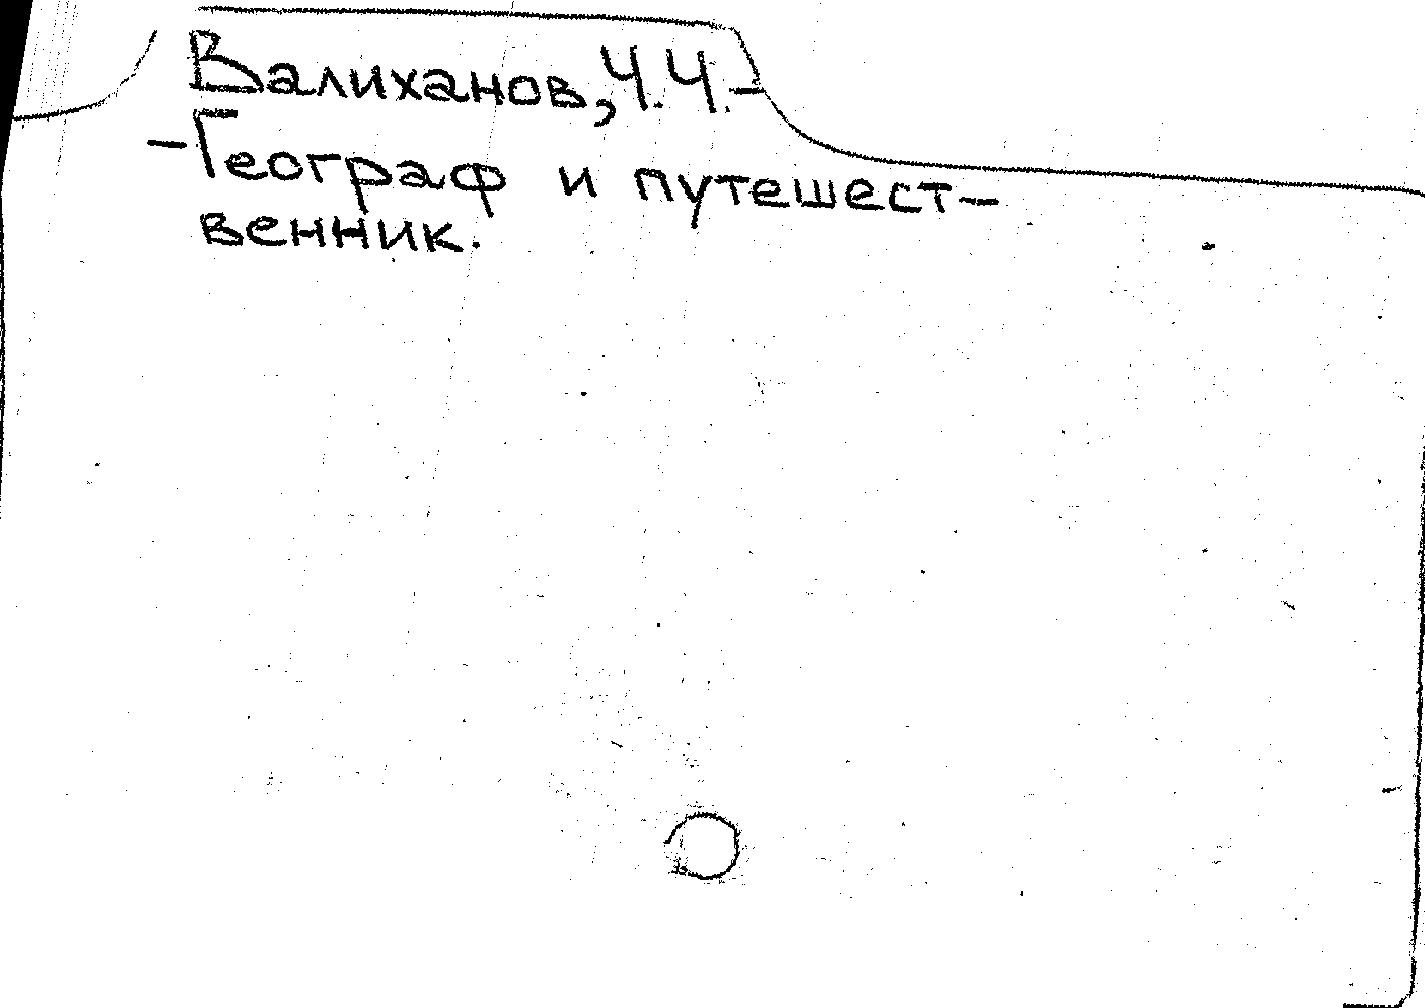 Валиханов, Ч.Ч. –
– Географ и путешест–
венник.